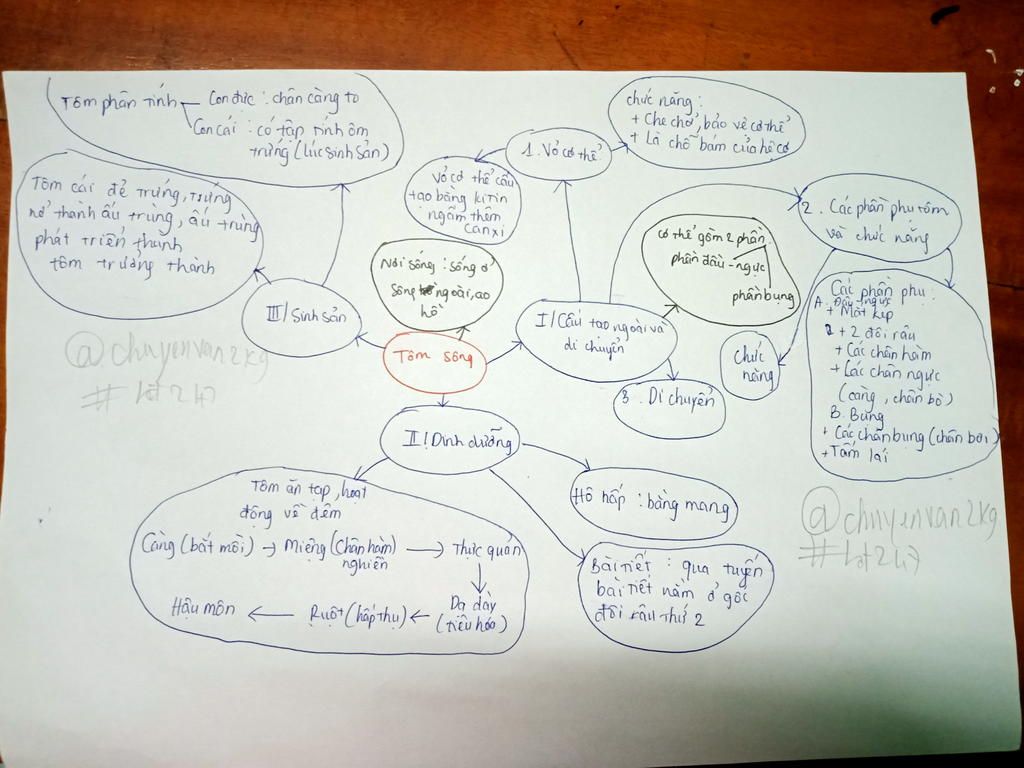 Tôm phân tính
Con đực : chân càng to
Con cái : có tập tính ôm
trứng (lúc sinh sản)
Tôm cái đẻ trứng, trứng
nở thành ấu trùng, ấu trùng
phát triển thành
tôm trưởng thành
III/ Sinh sản
Nơi sống : sống ở
sông ngoài, ao
hồ
Tôm sông
vỏ cơ thể cấu
tạo bằng kitin
ngấm thêm
canxi
1. Vỏ cơ thể
chức năng :
+ Che chở, bảo vệ cơ thể
+ Là chỗ bám của hệ cơ
I/ Cấu tạo ngoài và
di chuyển
cơ thể gồm 2 phần
phần đầu - ngực
phần bụng
2. Các phần phụ tôm
và chức năng
Chức
năng
Các phần phụ :
A. Đầu - ngực
+ Mắt kép
+ 2 đôi râu
+ Các chân hàm
+ Các chân ngực
(càng, chân bò)
B. Bụng
+ Các chân bụng (chân bơi)
+ Tấm lái
3. Di chuyển
II/ Dinh dưỡng
Tôm ăn tạp, hoạt
động về đêm
Càng (bắt mồi) → Miệng (Chân hàm) → Thực quản
nghiền
Hậu môn ← Ruột (hấp thụ) ← Dạ dày
(tiêu hóa)
Hô hấp : bằng mang
Bài tiết : qua tuyến
bài tiết nằm ở gốc
đôi râu thứ 2
@chuyenvan2kg
# Lot247
@chuyenvan2kg
# Lot247